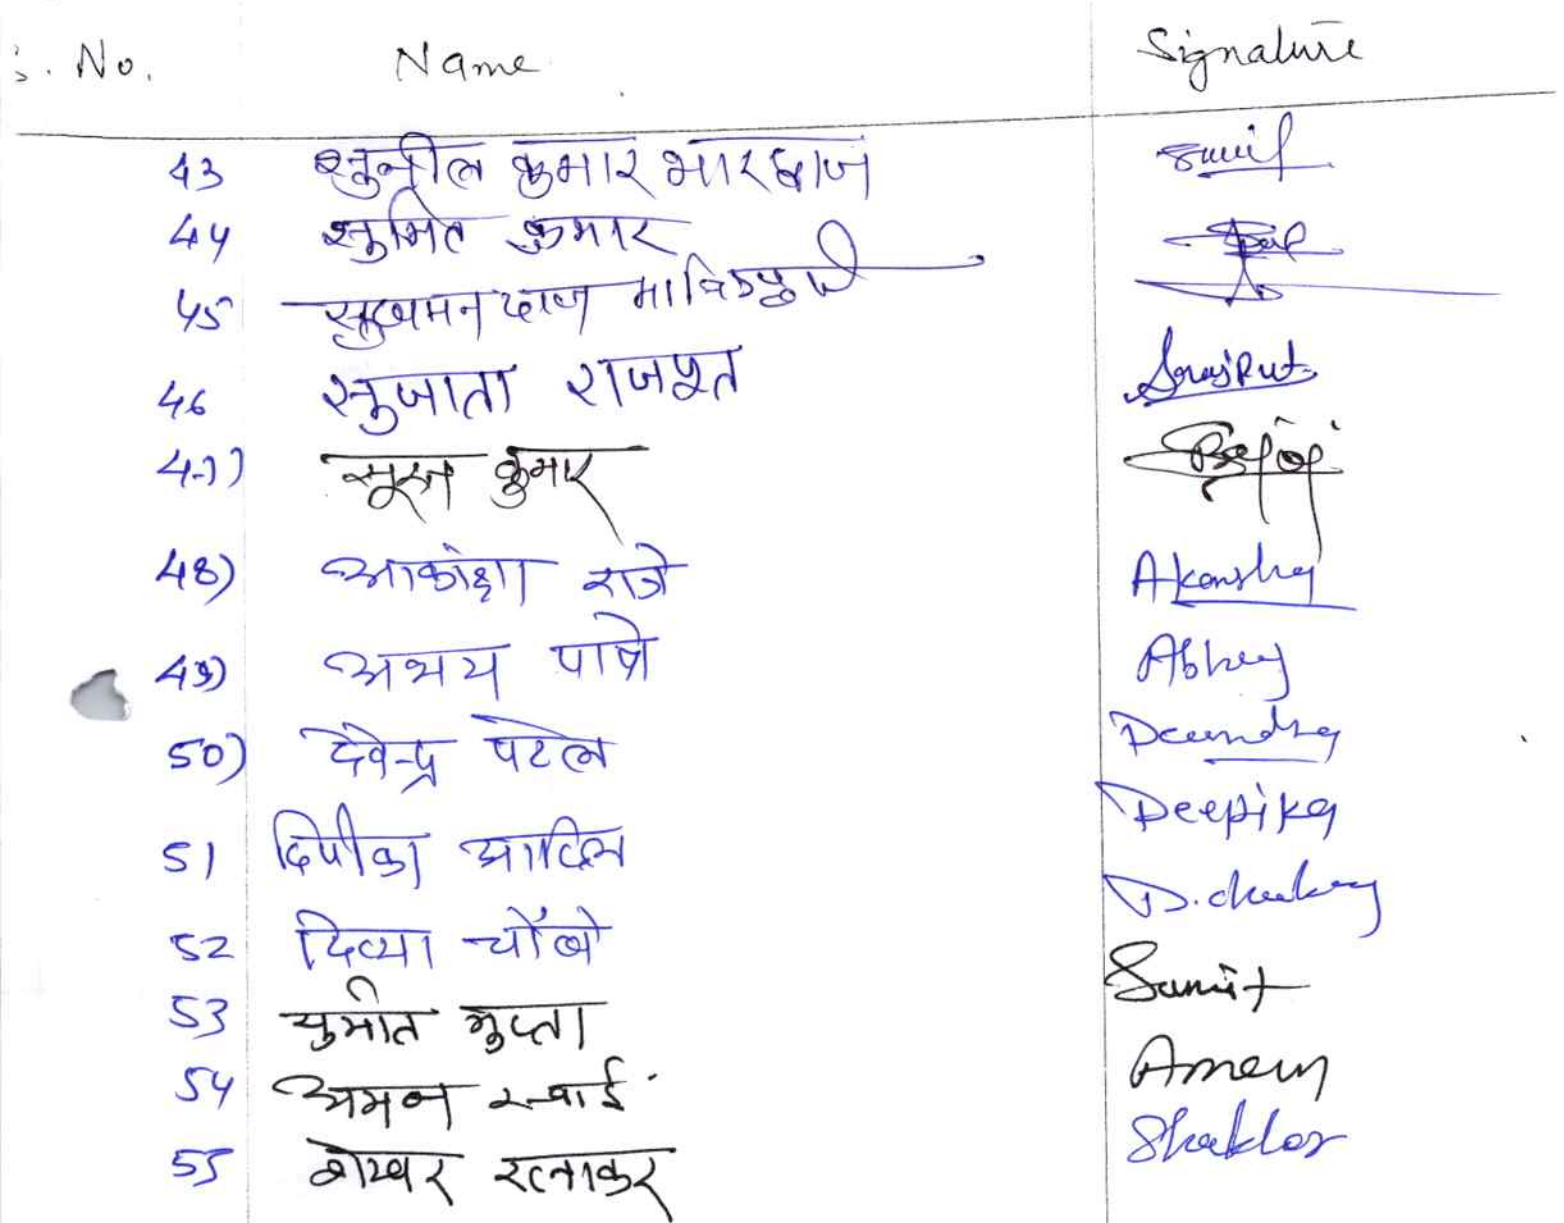 S. No. Name Signature
43 सुनील कुमार भारद्वाज Sunil
44 सुमित कुमार
45 सुखमन दास मानिकपुरी
46 सुजाता राजपूत Srajput
47) सूरज कुमार
48) आकांक्षा राजे Akansha
49) अभय पाण्डे Abhay
50) देवेन्द्र पटेल Devendra
51 दिपीका आदिल Deepika
52 दिव्या चौबे D.choubey
53 सुमीत गुप्ता Sumit
54 अमन Aman
55 शेखर रत्नाकर Shekhar